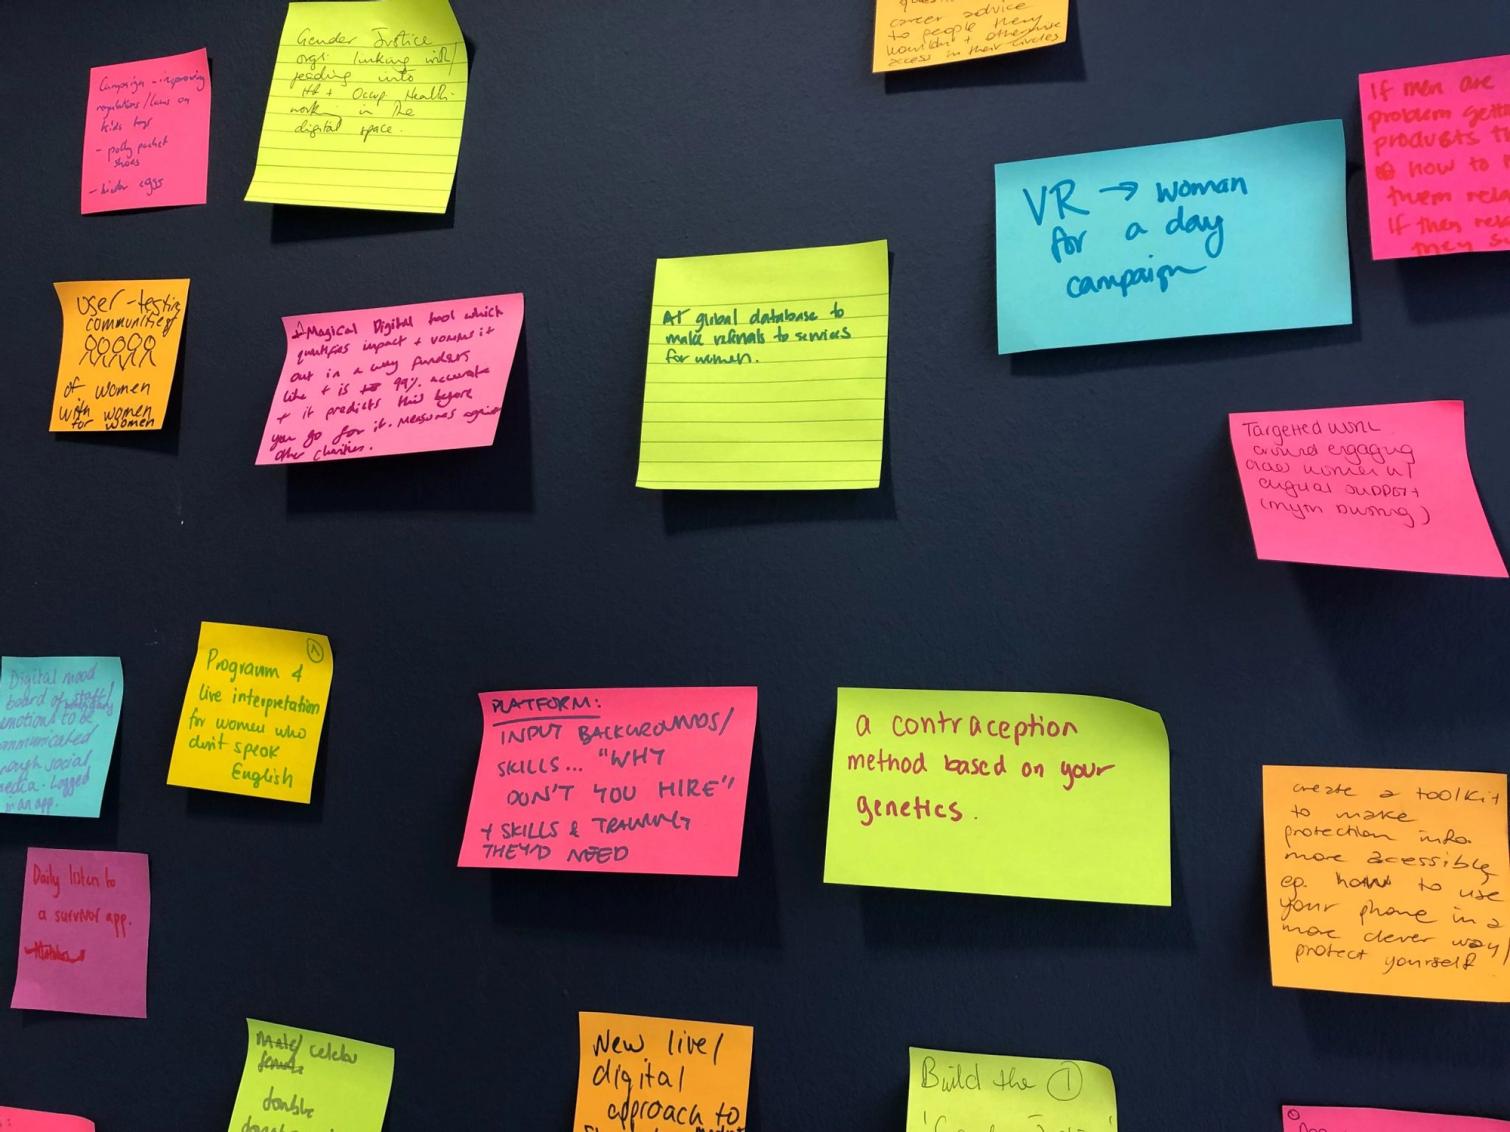 career advice
to people they
wouldn't otherwise
access in their circles
Campaign - improving
regulations/laws on
kids toys
- polly pocket
shoes
- kinder eggs
Gender Justice
orgs linking with/
feeding into
H+ Occup Health
working in the
digital space.
If men are
problem getti
products t
how to
them rela
If then rela
they s
VR → woman
for a day
campaign
User-testing
communities
of women
with women
for women
Magical Digital tool which
quantifies impact + vomits it
out in a way funders
like + is 99% accurate
+ it predicts this before
you go for it. Measures against
other charities.
AI global database to
make referrals to services
for women.
Targetted work
around engaging
older women w/
digital support
(myth busting)
Digital mood
board of staff/
emotions to be
ommunicated
rough social
media. Logged
in an app.
1
Programm 4
live interpretation
for women who
don't speak
English
PLATFORM:
INPUT BACKGROUNDS/
SKILLS... "WHY
DON'T YOU HIRE"
+ SKILLS & TRAINING
THEY'D NEED
a contraception
method based on your
genetics.
create a toolkit
to make
protection info.
more accessible,
eg. how to use
your phone in a
more clever way/
protect yourself
Daily listen to
a survivor app.
Male/ celebs
female
double
New live/
digital
approach to
Build the 1